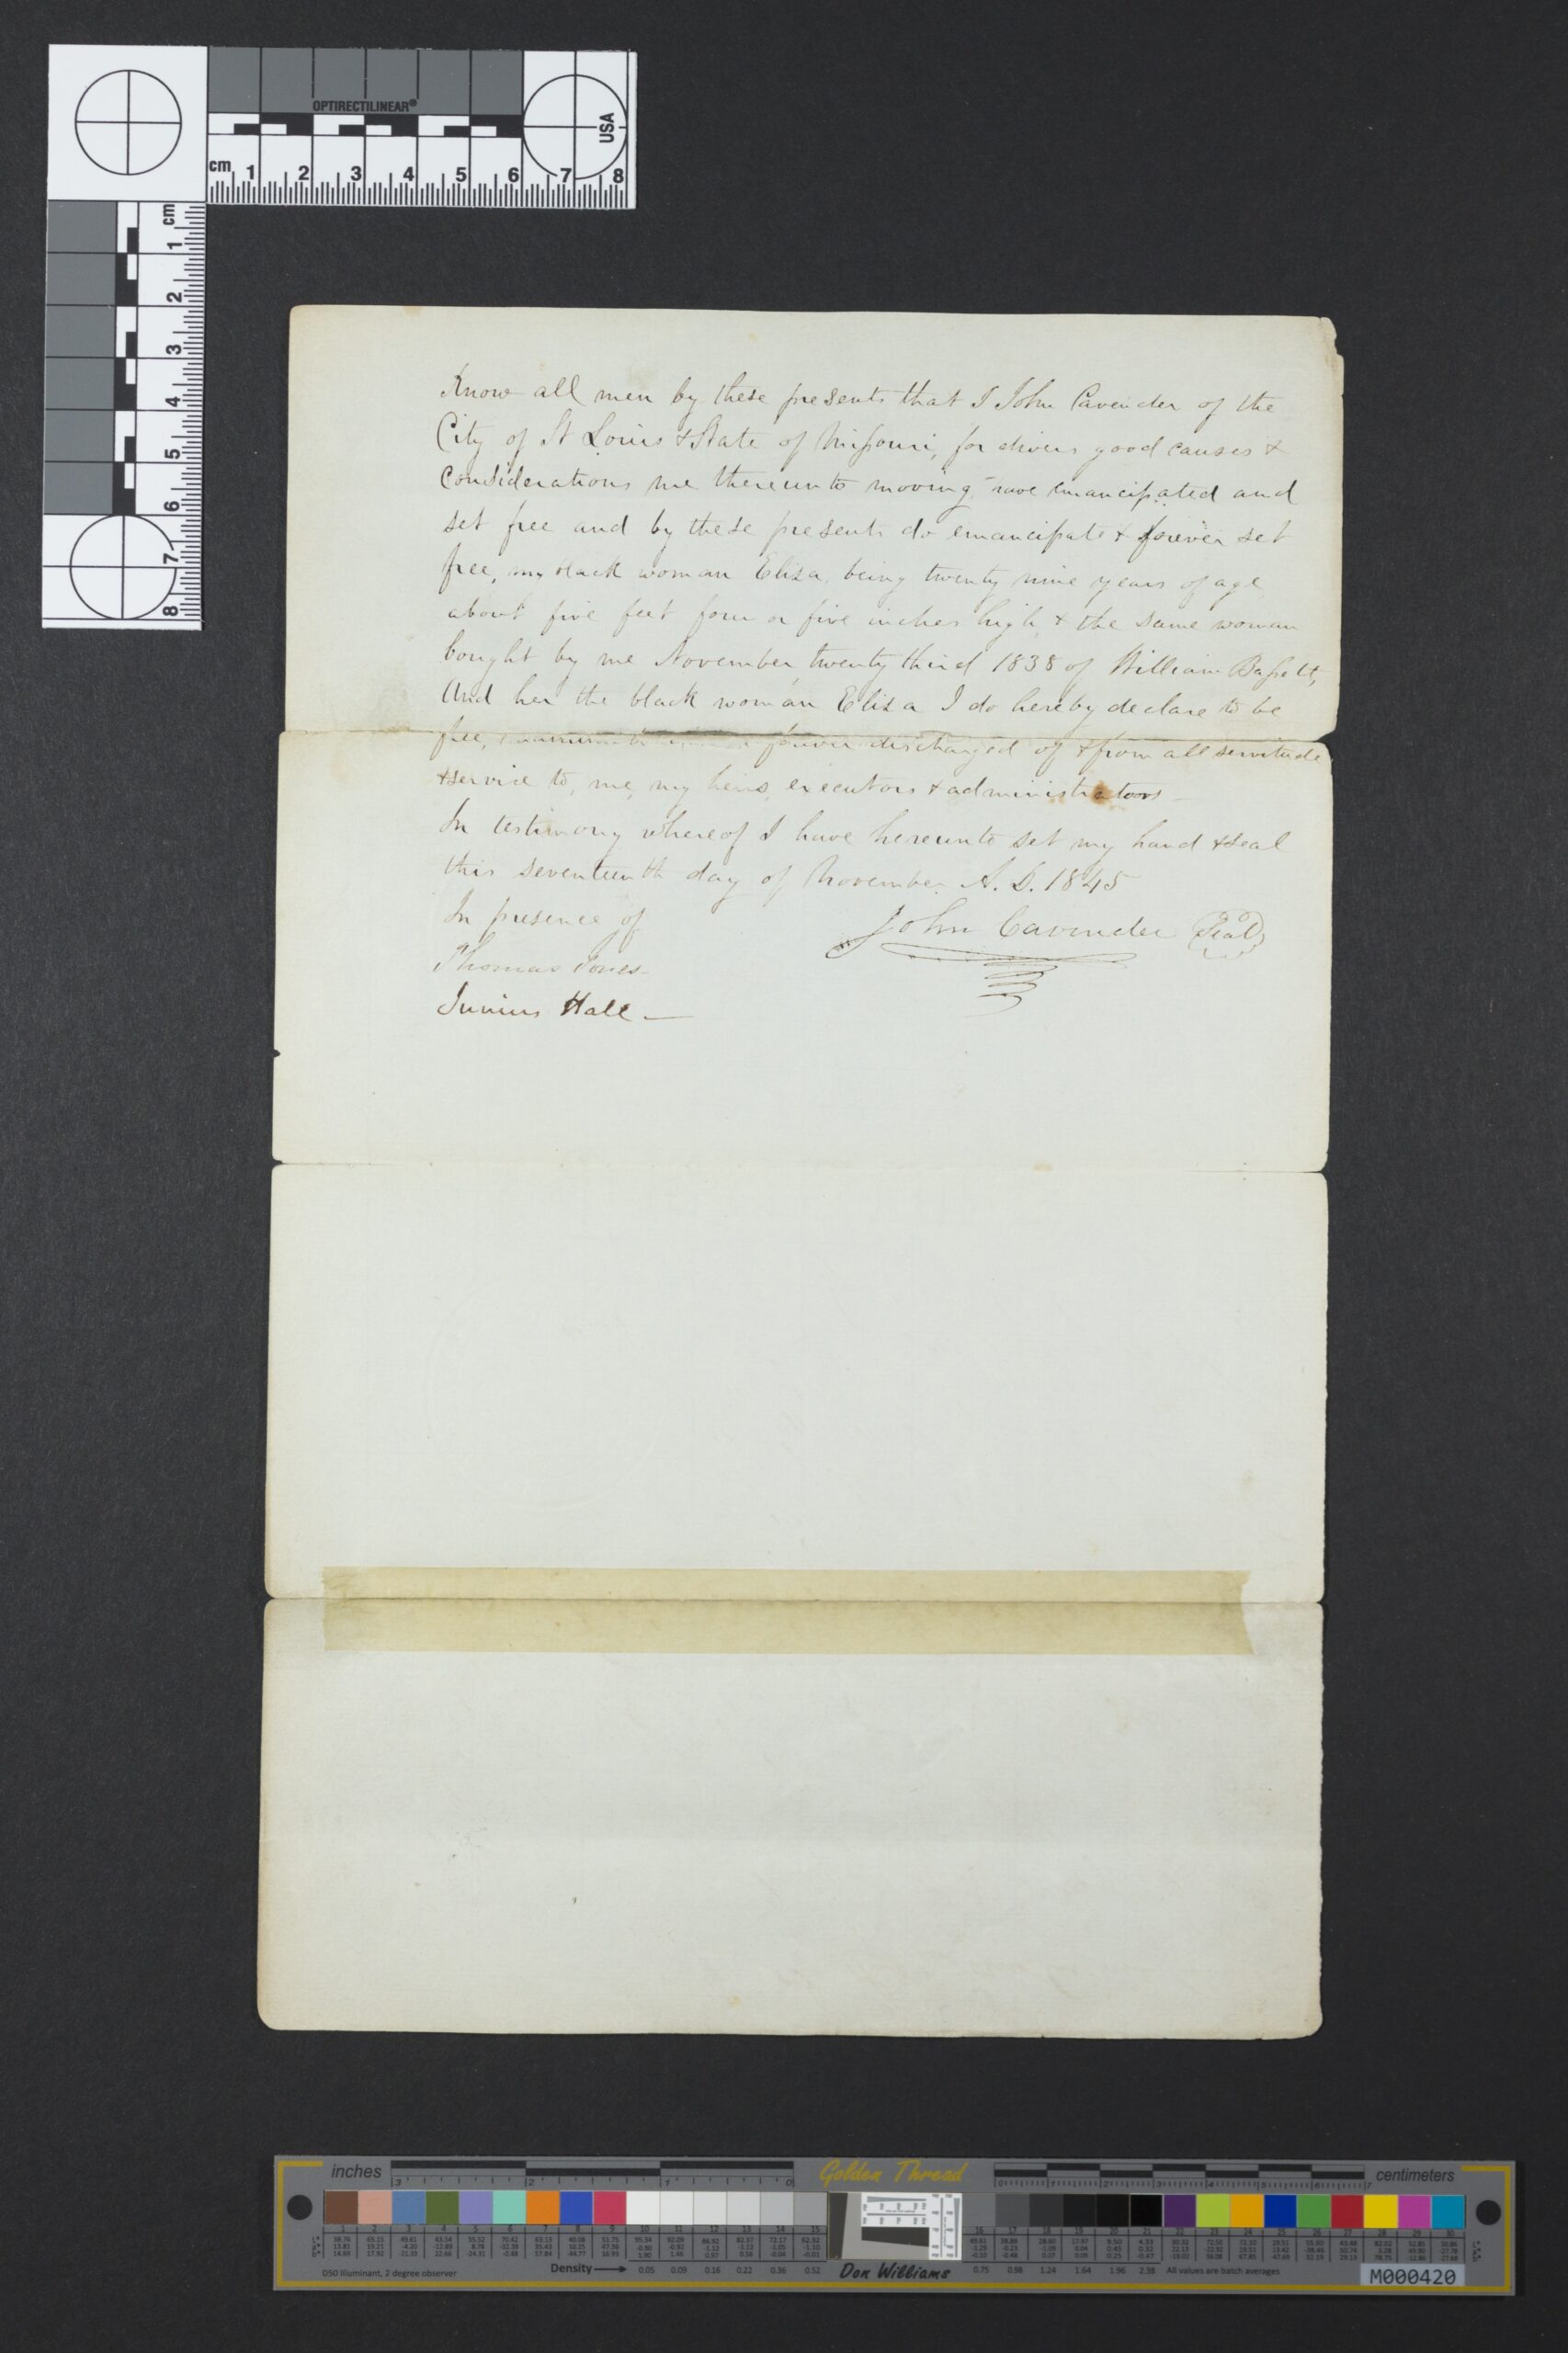 OPTIRECTILINEAR®
USA
cm 1 2 3 4 5 6 7 8
cm 1 2 3 4 5 6 7 8
Know all men by these presents that I John Cavender of the
City of St Louis & State of Missouri, for divers good causes &
Considerations me thereunto mooving, have emancipated and
set free and by these presents do emancipate & forever set
free, my black woman Eliza, being twenty nine years of age,
about five feet four or five inches high, & the same woman
bought by me November twenty third 1838 of William Bassett,
And her the black woman Eliza I do hereby declare to be
free, forever discharged of & from all servitude
& service to, me, my heirs, executors & administrators
In testimony whereof I have hereunto set my hand & seal
this seventeenth day of November A. D. 1845
In presence of
John Cavender Seal
Thomas Jones
Junius Hall
inches
Golden Thread
centimeters
D50 Illuminant, 2 degree observer
Density
0.05 0.09 0.16 0.22 0.36 0.52
Don Williams
0.75 0.98 1.24 1.64 1.96 2.38
All values are batch averages
M000420